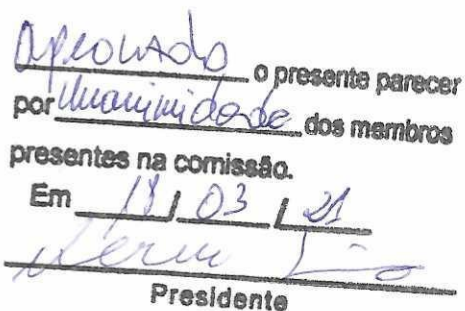 Aprovado o presente parecer
por unanimidade dos membros
presentes na comissão.
Em 18/03/21
Presidente